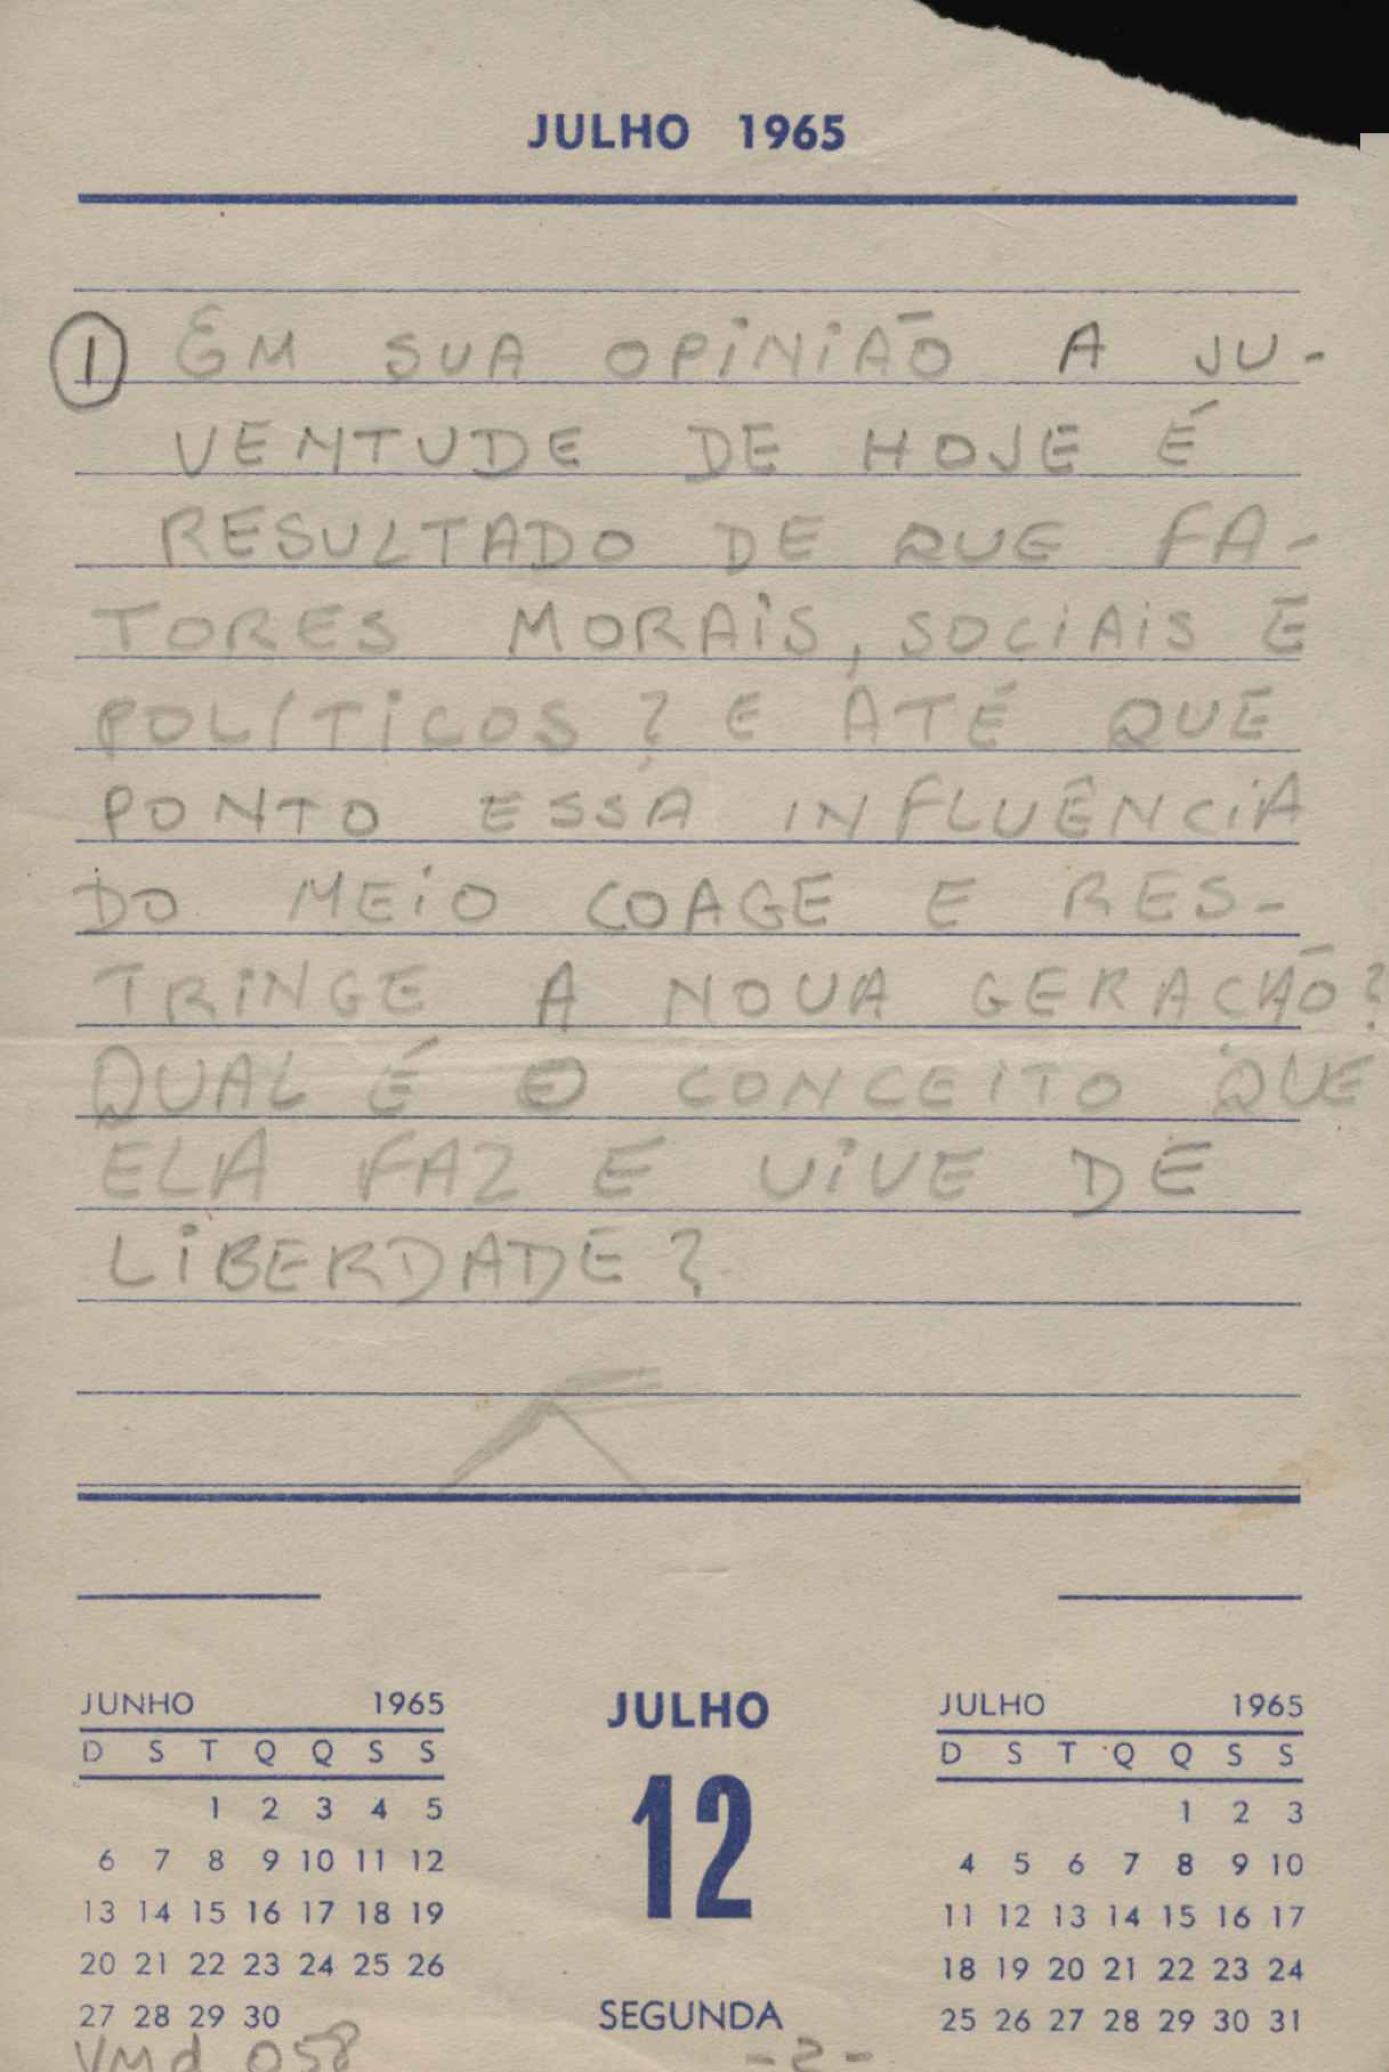 JULHO 1965
① EM SUA OPINIÃO A JU-
VENTUDE DE HOJE É
RESULTADO DE QUE FA-
TORES MORAIS, SOCIAIS E
POLÍTICOS? E ATÉ QUE
PONTO ESSA INFLUÊNCIA
DO MEIO COAGE E RES-
TRINGE A NOVA GERACÃO?
QUAL É O CONCEITO QUE
ELA FAZ E VIVE DE
LIBERDADE?
JUNHO 1965
D S T Q Q S S
1 2 3 4 5
6 7 8 9 10 11 12
13 14 15 16 17 18 19
20 21 22 23 24 25 26
27 28 29 30
JULHO
12
SEGUNDA
JULHO 1965
D S T Q Q S S
1 2 3
4 5 6 7 8 9 10
11 12 13 14 15 16 17
18 19 20 21 22 23 24
25 26 27 28 29 30 31
VMd 058
-2-